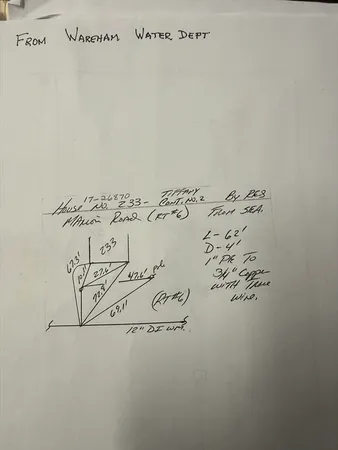 FROM WAREHAM WATER DEPT
17-26870 TIFFANY By RES
House No. 233- CONT. NO. 2 FROM SEA.
MARION ROAD (RT#6)
L-62'
D-4'
1" PE TO
3/4" Copper
WITH Trace
wire.
233
67.3'
10.1'
27.6'
72.9'
47.6'
pole
69.1'
(RT#6)
12" DI WM.